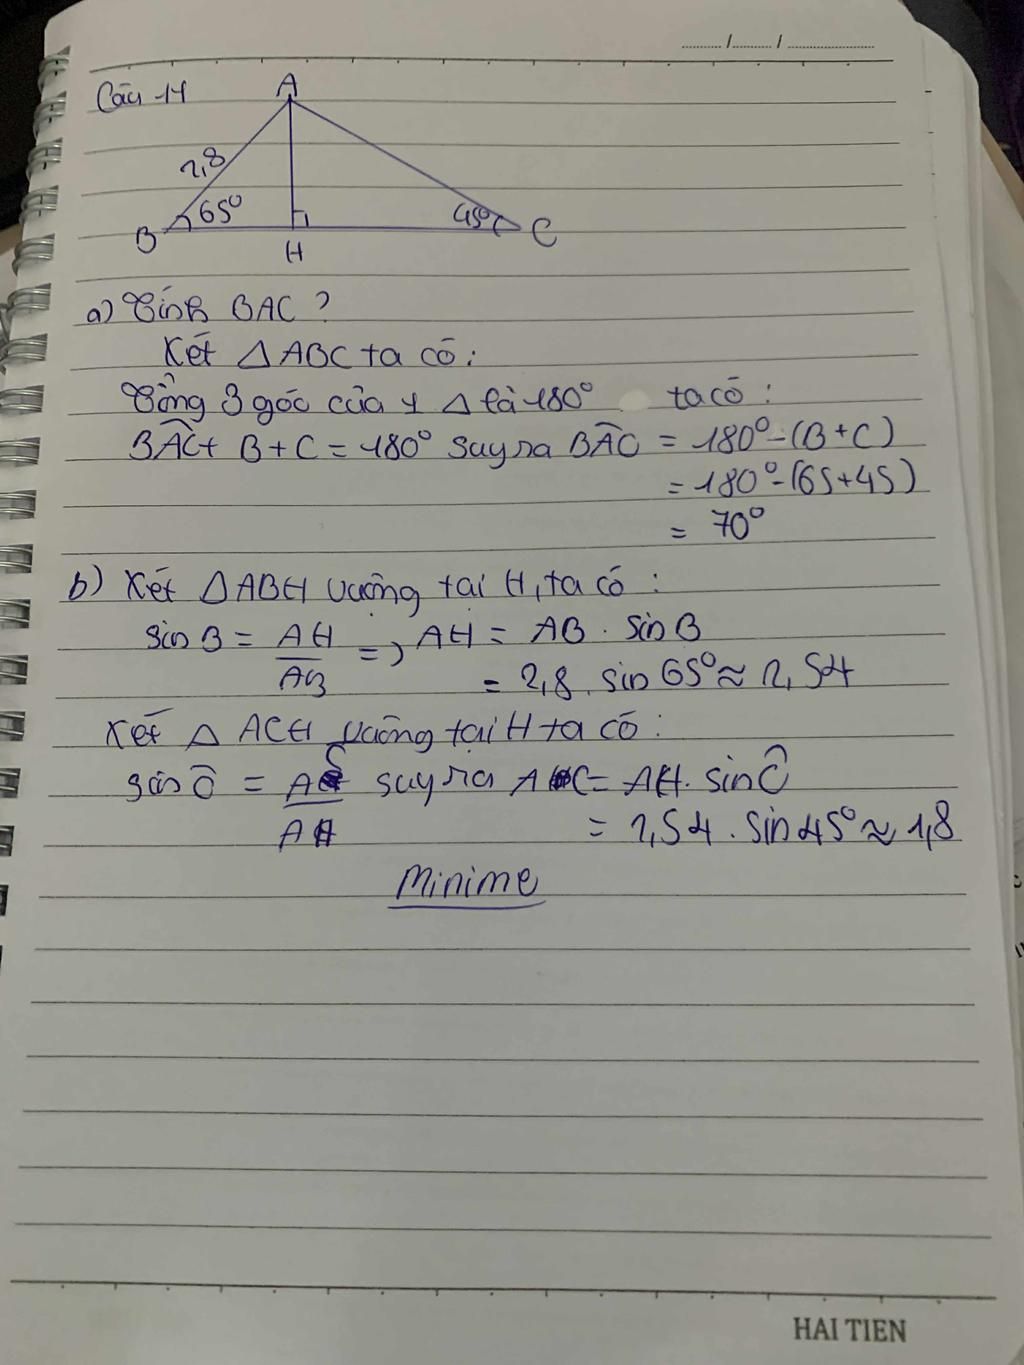 Câu 14
A
2,8
65°
45°
B
H
C
a) Tính BAC ?
Xét △ABC ta có:
Tổng 3 góc của 1 △ là 180° ta có:
BAC + B + C = 180° suy ra BAC = 180° - (B + C)
= 180° - (65 + 45)
= 70°
b) Xét △ABH vuông tại H, ta có :
sin B = AH/AB => AH = AB . sin B
= 2,8 . sin 65° ≈ 2,54
Xét △ ACH vuông tại H ta có :
sin C = AC/AH suy ra AC = AH . sin C
= 2,54 . sin 45° ≈ 1,8
Minime
HAI TIEN